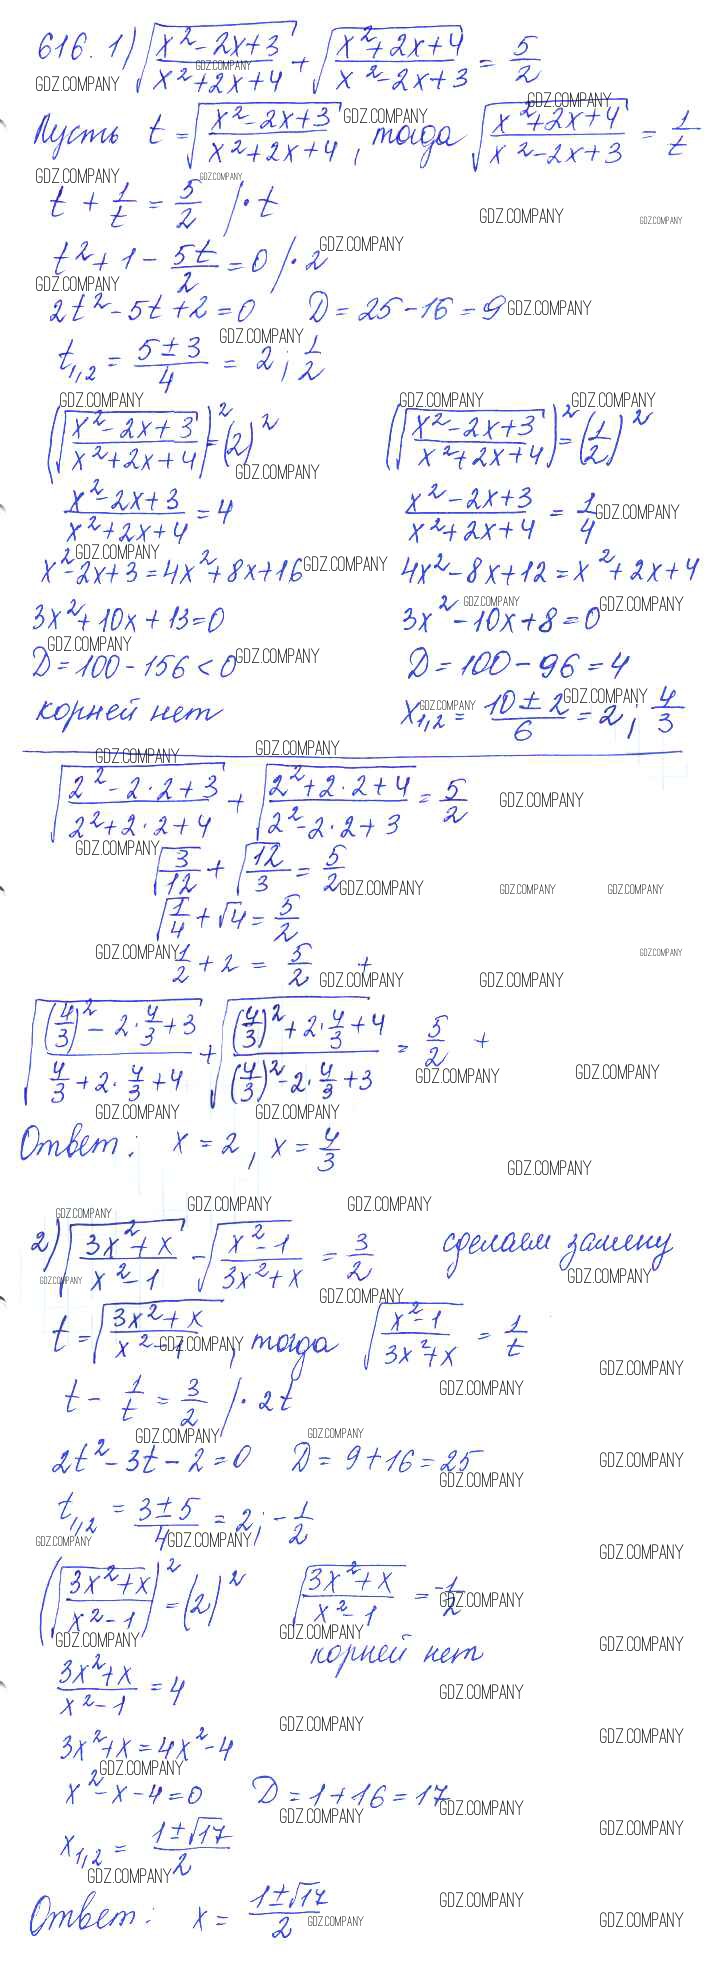 616. 1) √((x²-2x+3)/(x²+2x+4)) + √((x²+2x+4)/(x²-2x+3)) = 5/2
Пусть t = √((x²-2x+3)/(x²+2x+4)), тогда √((x²+2x+4)/(x²-2x+3)) = 1/t
t + 1/t = 5/2 /·t
t² + 1 - 5t/2 = 0 /·2
2t² - 5t + 2 = 0 D = 25 - 16 = 9
t₁,₂ = (5±3)/4 = 2; 1/2
(√((x²-2x+3)/(x²+2x+4)))² = (2)² (√((x²-2x+3)/(x²+2x+4)))² = (1/2)²
(x²-2x+3)/(x²+2x+4) = 4 (x²-2x+3)/(x²+2x+4) = 1/4
x²-2x+3 = 4x²+8x+16 4x²-8x+12 = x²+2x+4
3x²+10x+13=0 3x²-10x+8=0
D = 100 - 156 < 0 D = 100 - 96 = 4
корней нет x₁,₂ = (10±2)/6 = 2; 4/3
√((2²-2·2+3)/(2²+2·2+4)) + √((2²+2·2+4)/(2²-2·2+3)) = 5/2
√(3/12) + √(12/3) = 5/2
√(1/4) + √4 = 5/2
1/2 + 2 = 5/2 +
√(((4/3)²-2·4/3+3)/(4/3+2·4/3+4)) + √(((4/3)²+2·4/3+4)/((4/3)²-2·4/3+3)) = 5/2 +
Ответ: x = 2, x = 4/3
2) √((3x²+x)/(x²-1)) - √((x²-1)/(3x²+x)) = 3/2 сделаем замену
t = √((3x²+x)/(x²-1)), тогда √((x²-1)/(3x²+x)) = 1/t
t - 1/t = 3/2 /·2t
2t² - 3t - 2 = 0 D = 9 + 16 = 25
t₁,₂ = (3±5)/4 = 2; -1/2
(√((3x²+x)/(x²-1)))² = (2)² √((3x²+x)/(x²-1)) = -1/2
корней нет
(3x²+x)/(x²-1) = 4
3x²+x = 4x²-4
x²-x-4=0 D = 1+16 = 17
x₁,₂ = (1±√17)/2
Ответ: x = (1±√17)/2
GDZ.COMPANY